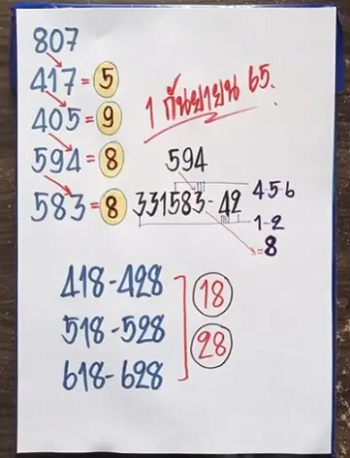 807
417 = 5
405 = 9
594 = 8
583 = 8
1 กันยายน 65.
594
331583 - 42
4-5-6
1-2
= 8
418 - 428
518 - 528
618 - 628
18
28